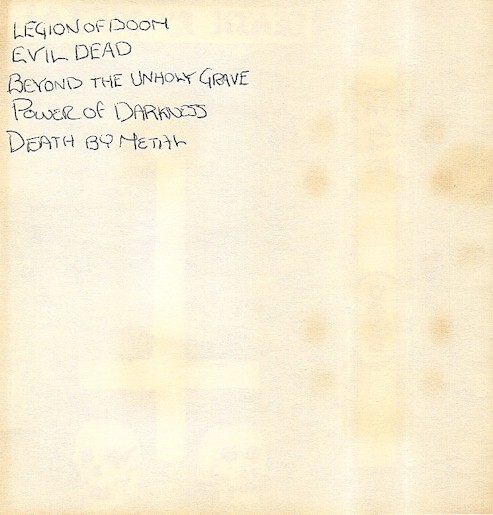 LEGION OF DOOM
EVIL DEAD
BEYOND THE UNHOLY GRAVE
POWER OF DARKNESS
DEATH BY METAL